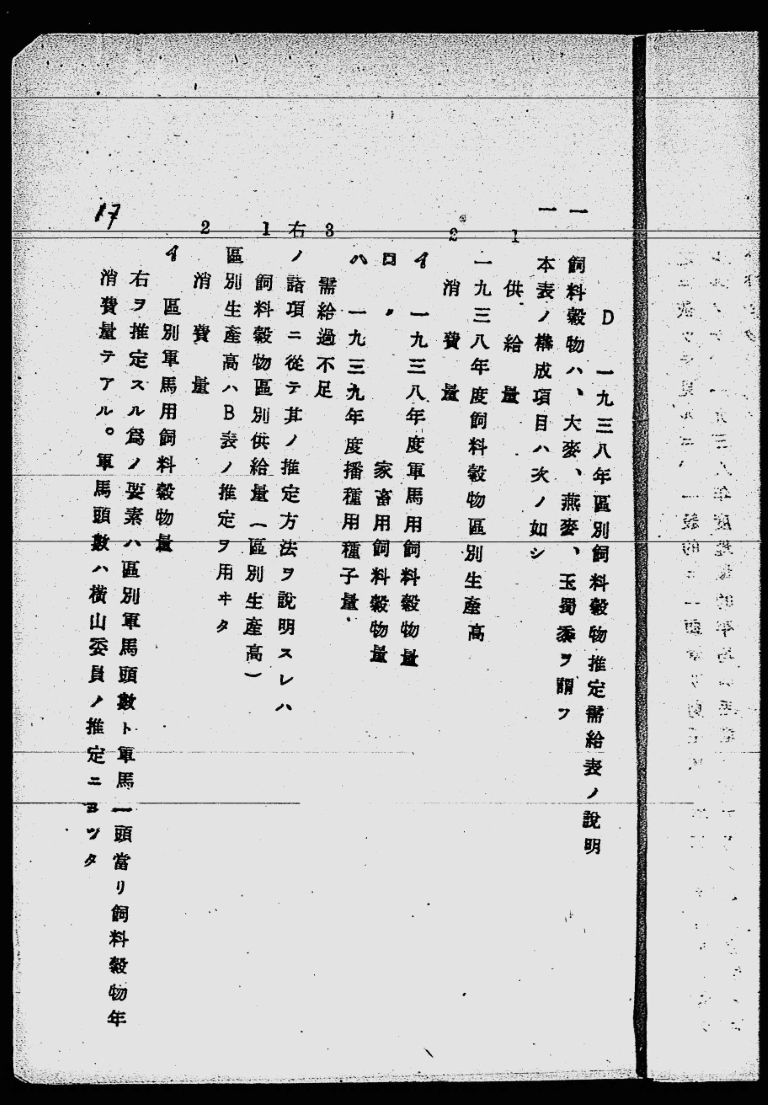 D 一九三八年區別飼料穀物推定需給表ノ說明
一 飼料穀物ハ、大麥、燕麥、玉蜀黍ヲ謂フ
一 本表ノ構成項目ハ次ノ如シ
1 供給量
一九三八年度飼料穀物區別生產高
2 消費量
イ 一九三八年度軍馬用飼料穀物量
ロ 〃 家畜用飼料穀物量
ハ 一九三九年度播種用種子量、
3 需給過不足
右ノ諸項ニ從テ其ノ推定方法ヲ說明スレハ
1 飼料穀物區別供給量(區別生產高)
區別生產高ハB表ノ推定ヲ用ヰタ
2 消費量
イ 區別軍馬用飼料穀物量
右ヲ推定スル爲ノ要素ハ區別軍馬頭數ト軍馬一頭當リ飼料穀物年
消費量テアル。軍馬頭數ハ橫山委員ノ推定ニヨツタ
17